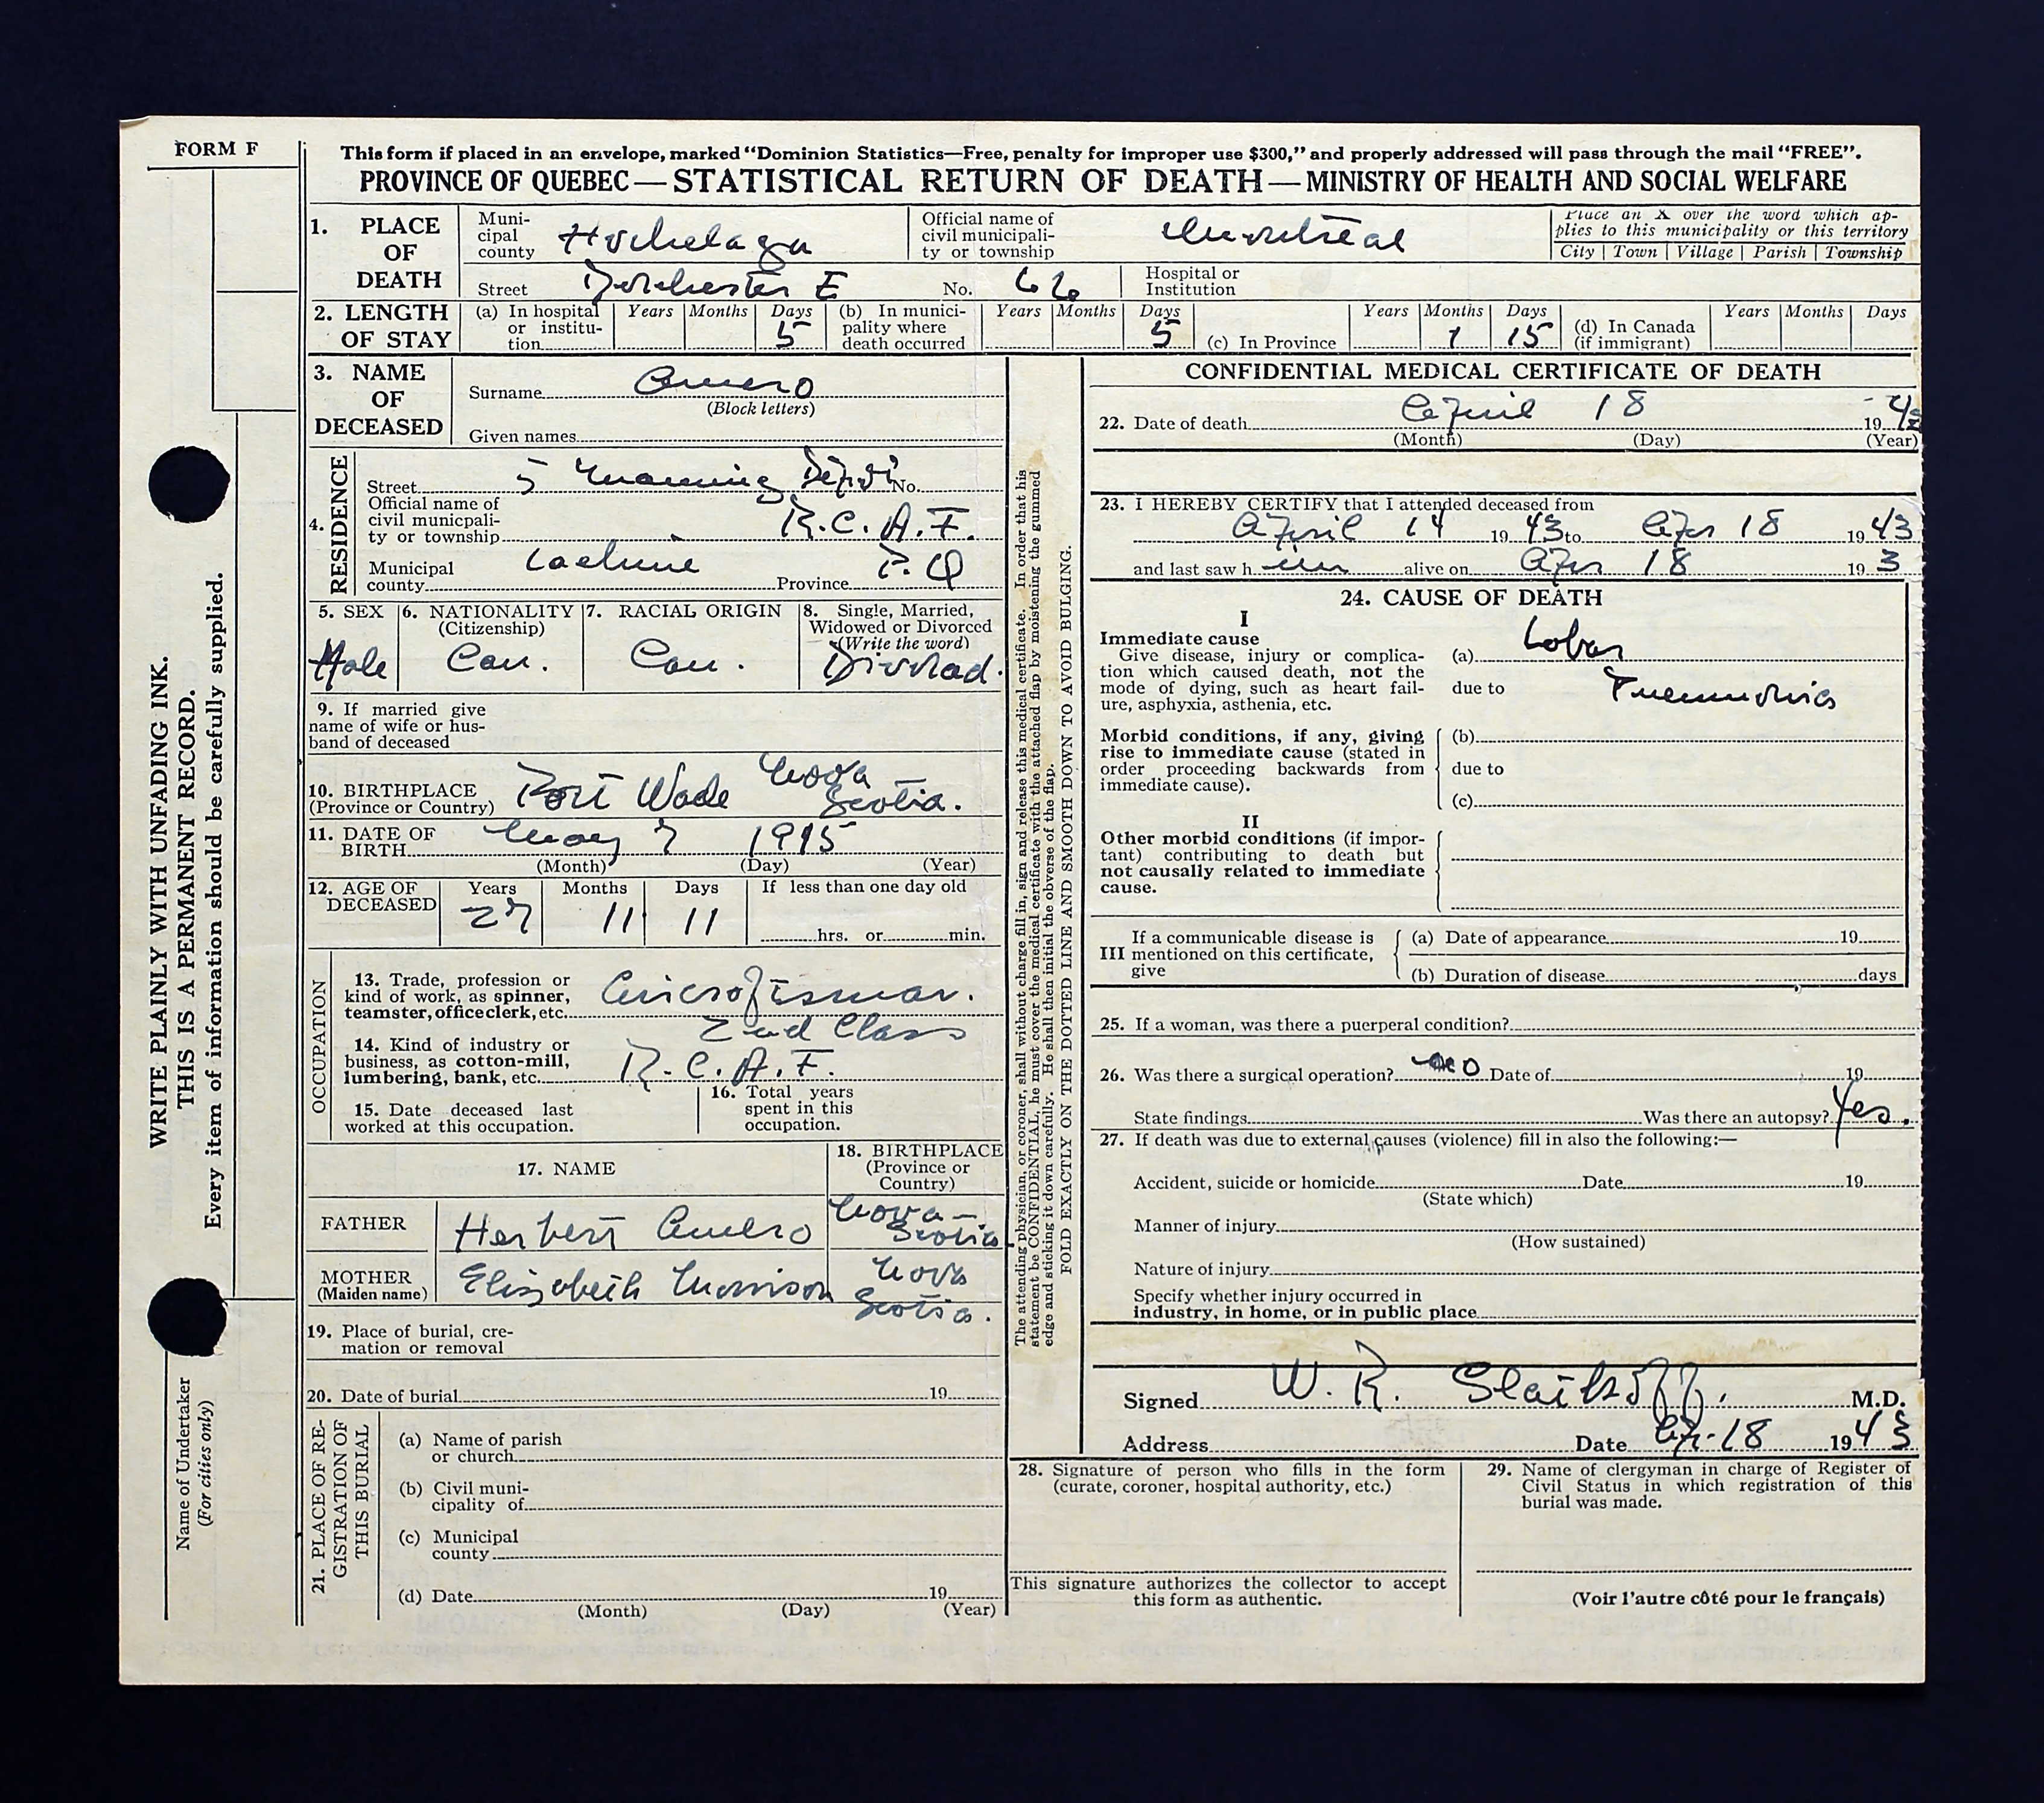 FORM F
This form if placed in an envelope, marked “Dominion Statistics—Free, penalty for improper use $300,” and properly addressed will pass through the mail “FREE”.
PROVINCE OF QUEBEC — STATISTICAL RETURN OF DEATH — MINISTRY OF HEALTH AND SOCIAL WELFARE
1. PLACE OF DEATH
Muni-
cipal
county Hochelaga
Official name of
civil municipali-
ty or township Montreal
Place an X over the word which ap-
plies to this municipality or this territory
City | Town | Village | Parish | Township
Street Dorchester E No. 66
Hospital or
Institution
2. LENGTH
OF STAY
(a) In hospital
or institu-
tion Years Months Days 5
(b) In munici-
pality where
death occurred Years Months Days 5
(c) In Province Years Months 1 Days 15
(d) In Canada
(if immigrant) Years Months Days
3. NAME
OF
DECEASED
Surname Amero
(Block letters)
Given names
4. RESIDENCE
Street 5 Manning Depot No.
Official name of
civil municpali-
ty or township R.C.A.F.
Municipal
county Lachine Province P.Q
5. SEX Male
6. NATIONALITY
(Citizenship) Can.
7. RACIAL ORIGIN Can.
8. Single, Married,
Widowed or Divorced
(Write the word)
9. If married give
name of wife or hus-
band of deceased
10. BIRTHPLACE
(Province or Country) Port Wade Nova
Scotia.
11. DATE OF
BIRTH May 7 1915
(Month) (Day) (Year)
12. AGE OF
DECEASED
Years 27 Months 11 Days 11
If less than one day old
hrs. or min.
OCCUPATION
13. Trade, profession or
kind of work, as spinner,
teamster, office clerk, etc. Aircraftsman.
2nd Class
14. Kind of industry or
business, as cotton-mill,
lumbering, bank, etc. R.C.A.F.
15. Date deceased last
worked at this occupation.
16. Total years
spent in this
occupation.
17. NAME
18. BIRTHPLACE
(Province or
Country)
FATHER Herbert Amero Nova-
Scotia
MOTHER
(Maiden name) Elizabeth Morrison Nova
Scotia.
19. Place of burial, cre-
mation or removal
20. Date of burial 19
21. PLACE OF RE-
GISTRATION OF
THIS BURIAL
(a) Name of parish
or church
(b) Civil muni-
cipality of
(c) Municipal
county
(d) Date 19
(Month) (Day) (Year)
The attending physician, or coroner, shall without charge fill in, sign and release this medical certificate. In order that his
statement be CONFIDENTIAL, he must cover the medical certificate with the attached flap by moistening the gummed
edge and sticking it down carefully. He shall then initial the obverse of the flap.
FOLD EXACTLY ON THE DOTTED LINE AND SMOOTH DOWN TO AVOID BULGING.
CONFIDENTIAL MEDICAL CERTIFICATE OF DEATH
22. Date of death April 18 19 43
(Month) (Day) (Year)
23. I HEREBY CERTIFY that I attended deceased from
April 14 19 43 to Apr 18 19 43
and last saw h im alive on Apr 18 19 3
24. CAUSE OF DEATH
I
Immediate cause
Give disease, injury or complica-
tion which caused death, not the
mode of dying, such as heart fail-
ure, asphyxia, asthenia, etc.
(a) Lobar
due to Pneumonia
Morbid conditions, if any, giving
rise to immediate cause (stated in
order proceeding backwards from
immediate cause).
(b)
due to
(c)
II
Other morbid conditions (if impor-
tant) contributing to death but
not causally related to immediate
cause.
III If a communicable disease is
mentioned on this certificate,
give
(a) Date of appearance 19
(b) Duration of disease days
25. If a woman, was there a puerperal condition?
26. Was there a surgical operation? no Date of 19
State findings Was there an autopsy? Yes.
27. If death was due to external causes (violence) fill in also the following:—
Accident, suicide or homicide Date 19
(State which)
Manner of injury
(How sustained)
Nature of injury
Specify whether injury occurred in
industry, in home, or in public place
Signed W. R. M.D.
Address Date Apr-18 19 43
28. Signature of person who fills in the form
(curate, coroner, hospital authority, etc.)
This signature authorizes the collector to accept
this form as authentic.
29. Name of clergyman in charge of Register of
Civil Status in which registration of this
burial was made.
(Voir l’autre côté pour le français)
WRITE PLAINLY WITH UNFADING INK.
THIS IS A PERMANENT RECORD.
Every item of information should be carefully supplied.
Name of Undertaker
(For cities only)